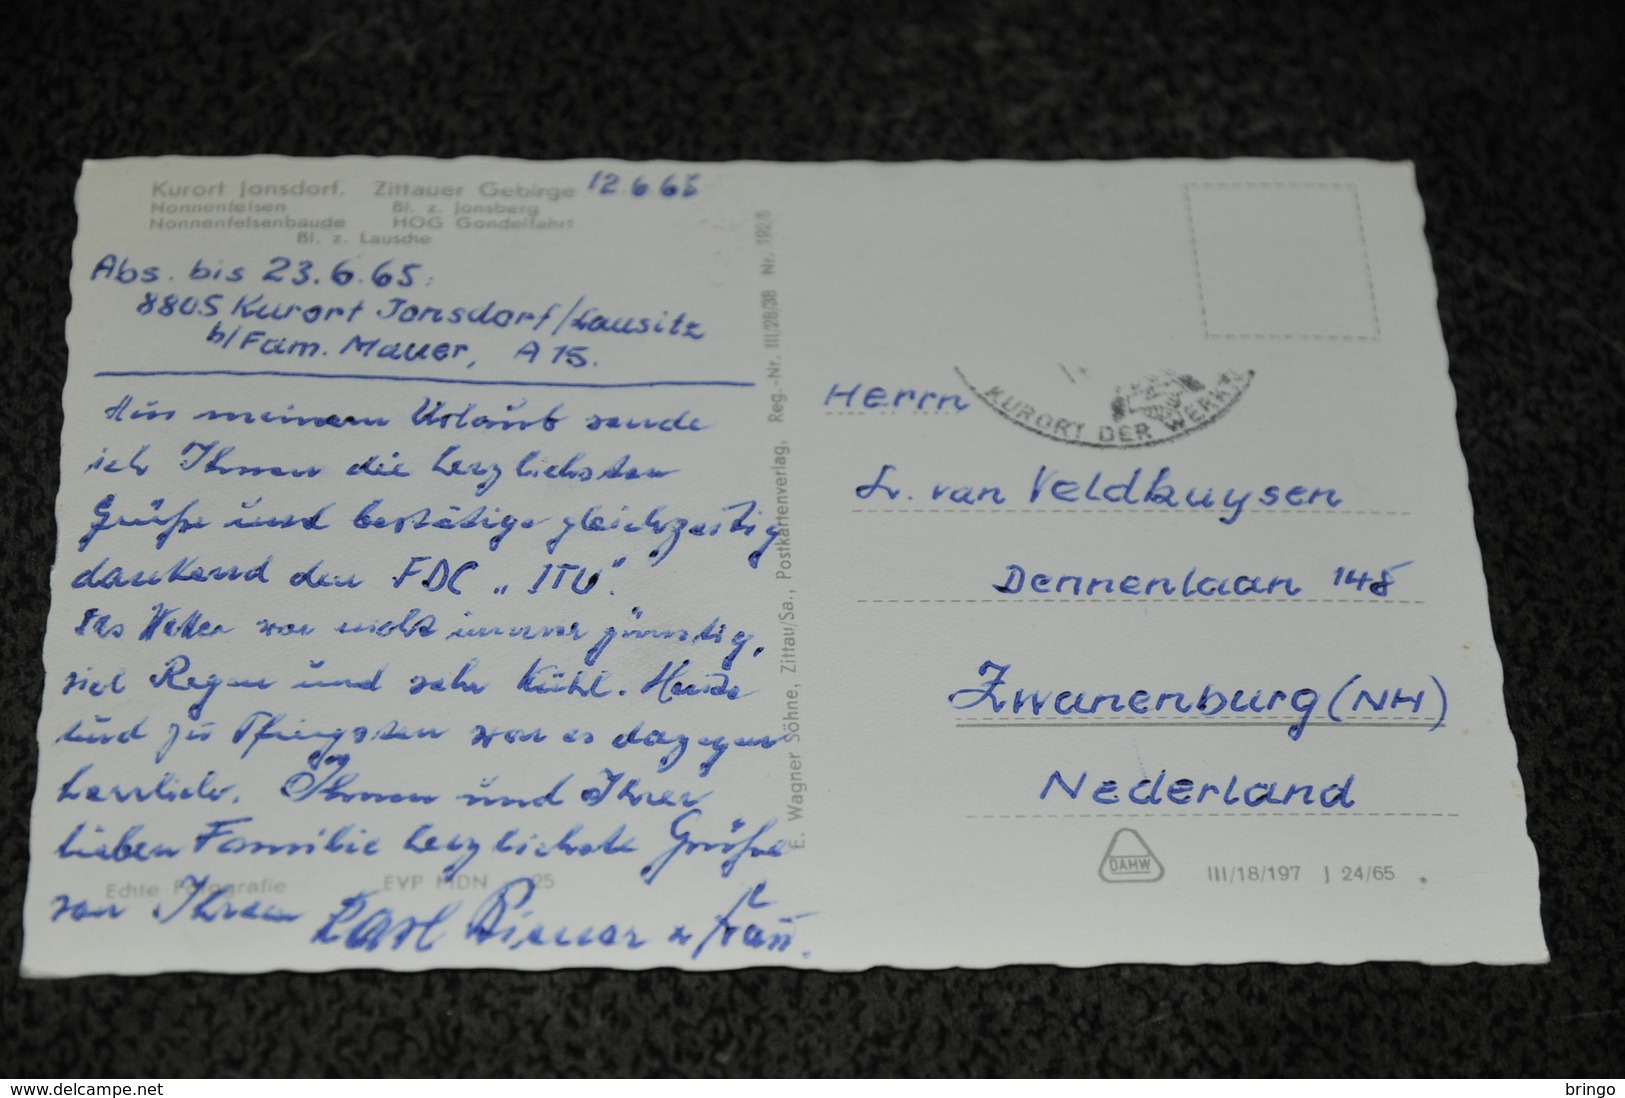 Kurort Jonsdorf, Zittauer Gebirge
12.6.65
Nonnenfelsen Bl. z. Jonsberg
Nonnenfelsenbaude HOG Gondelfahrt
Bl. z. Lausche
Abs. bis 23.6.65:
8805 Kurort Jonsdorf/Lausitz
b/Fam. Mauer, A 15.
Aus meinem Urlaub sende
ich Ihnen die herzlichsten
Grüße und bestätige gleichzeitig
dankend den FDC „ITU".
Das Wetter war nicht immer günstig,
viel Regen und sehr kühl. Heute
und zu Pfingsten war es dagegen
herrlich. Ihnen und Ihrer
lieben Familie herzlichste Grüße
von Ihrem Karl u. Frau.
Echte Fotografie EVP MDN 25
E. Wagner Söhne, Zittau/Sa., Postkartenverlag, Reg.-Nr. III/28/38 Nr. 1925
KURORT DER WERKTÄ
Herrn
L. van Veldhuysen
Dennenlaan 148
Zwanenburg (NH)
Nederland
DAMW
III/18/197 J 24/65
bringo
delcampe.net